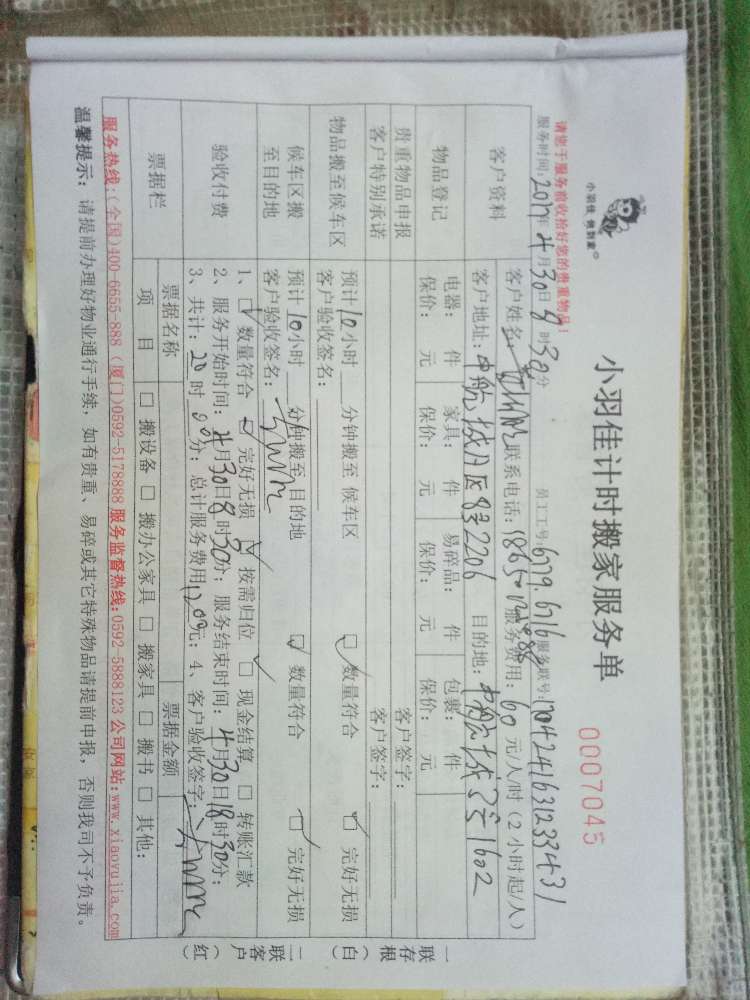 小羽佳 做到家
小羽佳计时搬家服务单
0007045
请您于服务前收拾好您的贵重物品!
服务时间:2017年4月30日8时30分 员工工号:6779.6716 服务联号:1704241631233431
客户资料
客户姓名: 联系电话: 服务费用:60元/人/时(2小时起/人)
客户地址:中航城A区8栋2206 目的地:中航城 1602
物品登记
电器: 件 家具: 件 易碎品: 件 包裹: 件
保价: 元 保价: 元 保价: 元 保价: 元
贵重物品申报 客户签字:
客户特别承诺 客户签字:
物品搬至候车区
预计10小时 分钟搬至 候车区 数量符合 完好无损
客户验收签名:
候车区搬至目的地
预计10小时 分钟搬至 目的地 数量符合 完好无损
客户验收签名:
验收付费
1、数量符合 完好无损 按需归位 现金结算 转账汇款
2、服务开始时间:4月30日8时30分;服务结束时间:4月30日18时30分;
3、共计:20时00分;总计服务费用1200元;4、客户验收签字:
票据栏
票据名称 票据金额
项 目 搬设备 搬办公家具 搬家具 搬书 其他:
服务热线:(全国)400-6655-888 (厦门)0592-5178888 服务监督热线:0592-5888123 公司网站:www.xiaoyujia.com
温馨提示:请提前办理好物业通行手续,如有贵重、易碎或其它特殊物品请提前申报,否则我司不予负责。
一联存根(白)
二联客户(红)